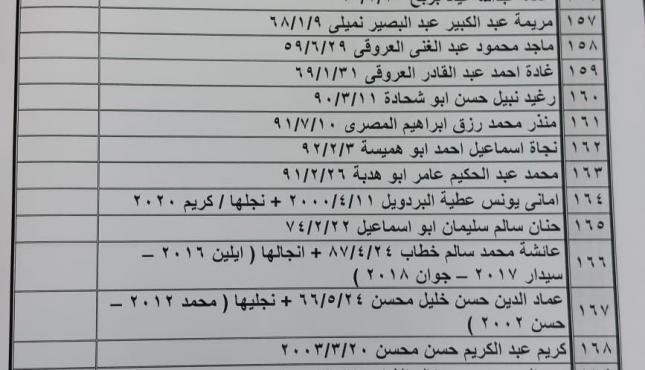 ١٥٧ مريمة عبد الكبير عبد البصير نميلى ٦٨/١/٩
١٥٨ ماجد محمود عبد الغنى العروقى ٥٩/٦/٢٩
١٥٩ غادة احمد عبد القادر العروقى ٦٩/١/٣١
١٦٠ رغيد نبيل حسن ابو شحادة ٩٠/٣/١١
١٦١ منذر محمد رزق ابراهيم المصرى ٩١/٧/١٠
١٦٢ نجاة اسماعيل احمد ابو هميسة ٩٢/٢/٣
١٦٣ محمد عبد الحكيم عامر ابو هدبة ٩١/٢/٢٦
١٦٤ امانى يونس عطية البردويل ٢٠٠٠/٤/١١ + نجلها / كريم ٢٠٢٠
١٦٥ حنان سالم سليمان ابو اسماعيل ٧٤/٢/٢٢
١٦٦ عائشة محمد سالم خطاب ٨٧/٤/٢٤ + انجالها ( ايلين ٢٠١٦ –
سيدار ٢٠١٧ – جوان ٢٠١٨ )
١٦٧ عماد الدين حسن خليل محسن ٦٦/٥/٢٤ + نجليها ( محمد ٢٠١٢ –
حسن ٢٠٠٢ )
١٦٨ كريم عبد الكريم حسن محسن ٢٠٠٣/٣/٢٠